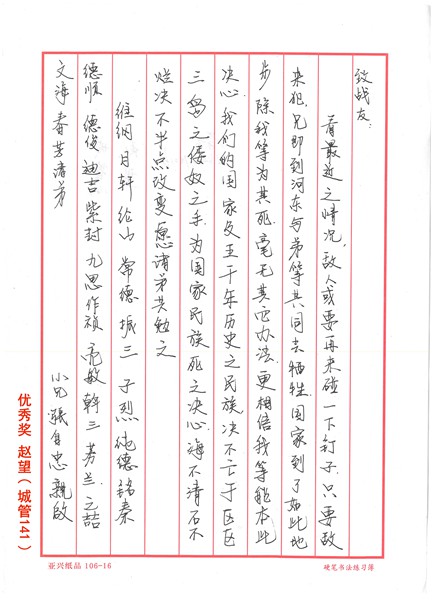 致战友:
看最近之情况,敌人或要再来碰一下钉子。只要敌
来犯,兄即到河东与弟等共同去牺牲。国家到了如此地
步,除我等为其死,毫无其它办法。更相信我等能本此
决心,我们的国家及五千年历史之民族,决不亡于区区
三岛之倭奴之手。为国家民族死之决心,海不清,石不
烂,决不半点改变。愿诸弟共勉之
维纲 月轩 纶山 常德 振三 子烈 纯德 铭秦
德顺 德俊 迪吉 紫封 九思 作祯 亮敏 斡三 芳兰 之喆
文海 春芳诸弟
小兄张自忠親啟
优秀奖 赵望(城管141)
亚兴纸品 106-16
硬笔书法练习簿